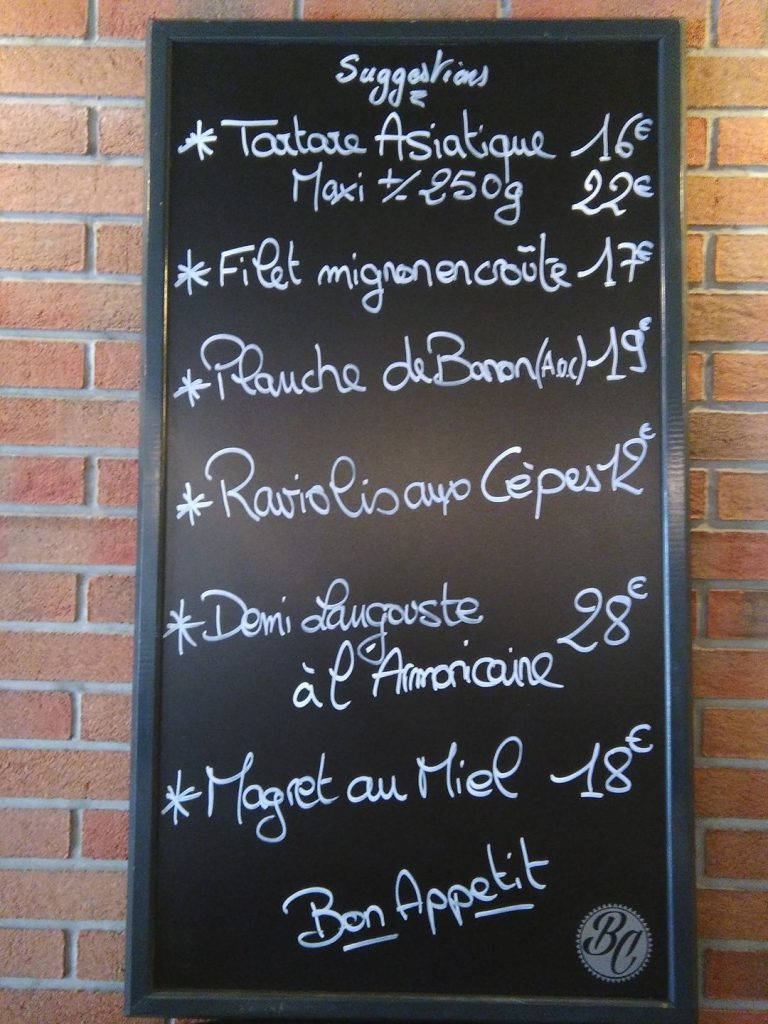 Suggestions
* Tartare Asiatique 16€
Maxi +/- 250g 22€
* Filet mignon en croûte 17€
* Planche de Banon (A.O.C) 19€
* Raviolis aux Cèpes 12€
* Demi Langouste 28€
à l'Armoricaine
* Magret au Miel 18€
Bon Appetit
BC